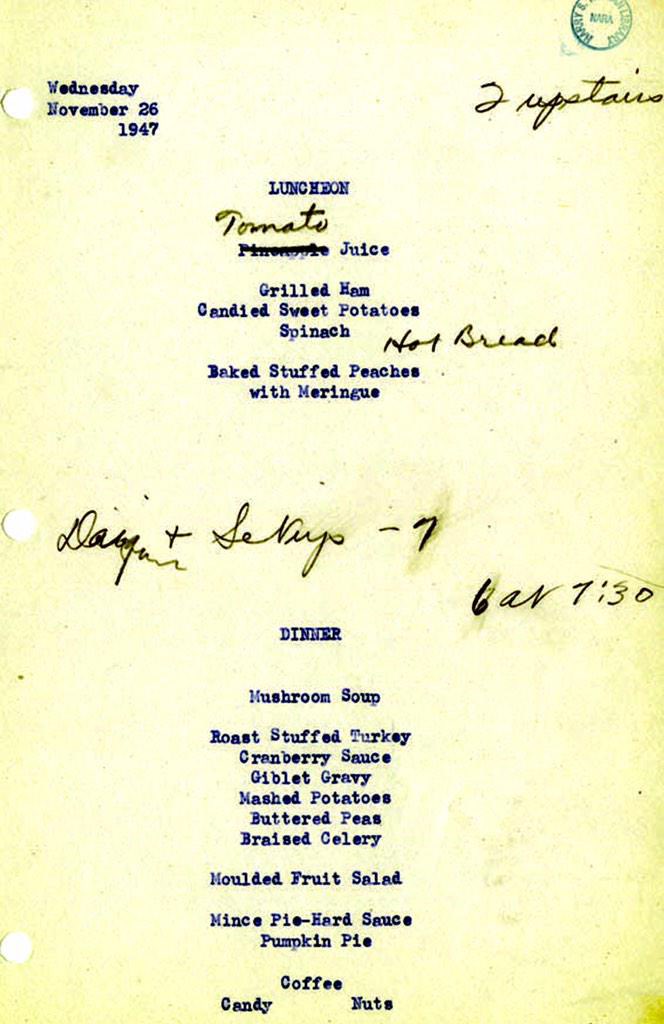 HARRY S. LIBRARY
NARA
Wednesday
November 26
1947
2 upstairs
LUNCHEON
Tomato
Pineapple Juice
Grilled Ham
Candied Sweet Potatoes
Spinach
Hot Bread
Baked Stuffed Peaches
with Meringue
+ - 7
6 at 7:30
DINNER
Mushroom Soup
Roast Stuffed Turkey
Cranberry Sauce
Giblet Gravy
Mashed Potatoes
Buttered Peas
Braised Celery
Moulded Fruit Salad
Mince Pie-Hard Sauce
Pumpkin Pie
Coffee
Candy Nuts